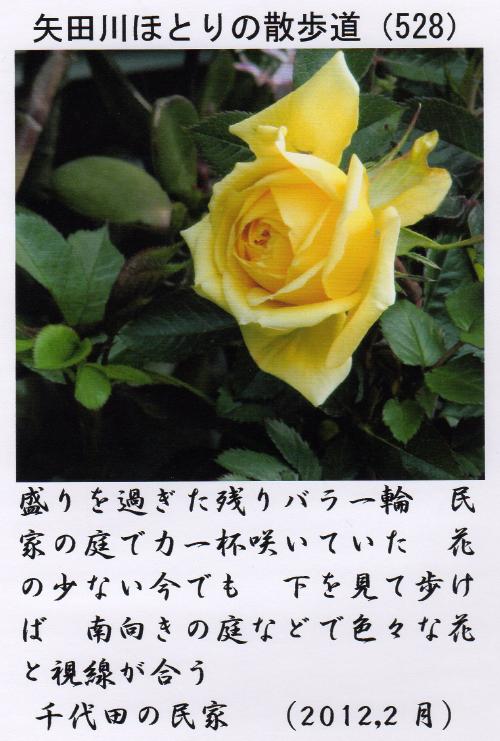 矢田川ほとりの散歩道（528）
盛りを過ぎた残りバラ一輪　民
家の庭で力一杯咲いていた　花
の少ない今でも　下を見て歩け
ば　南向きの庭などで色々な花
と視線が合う
千代田の民家　（2012,2月）